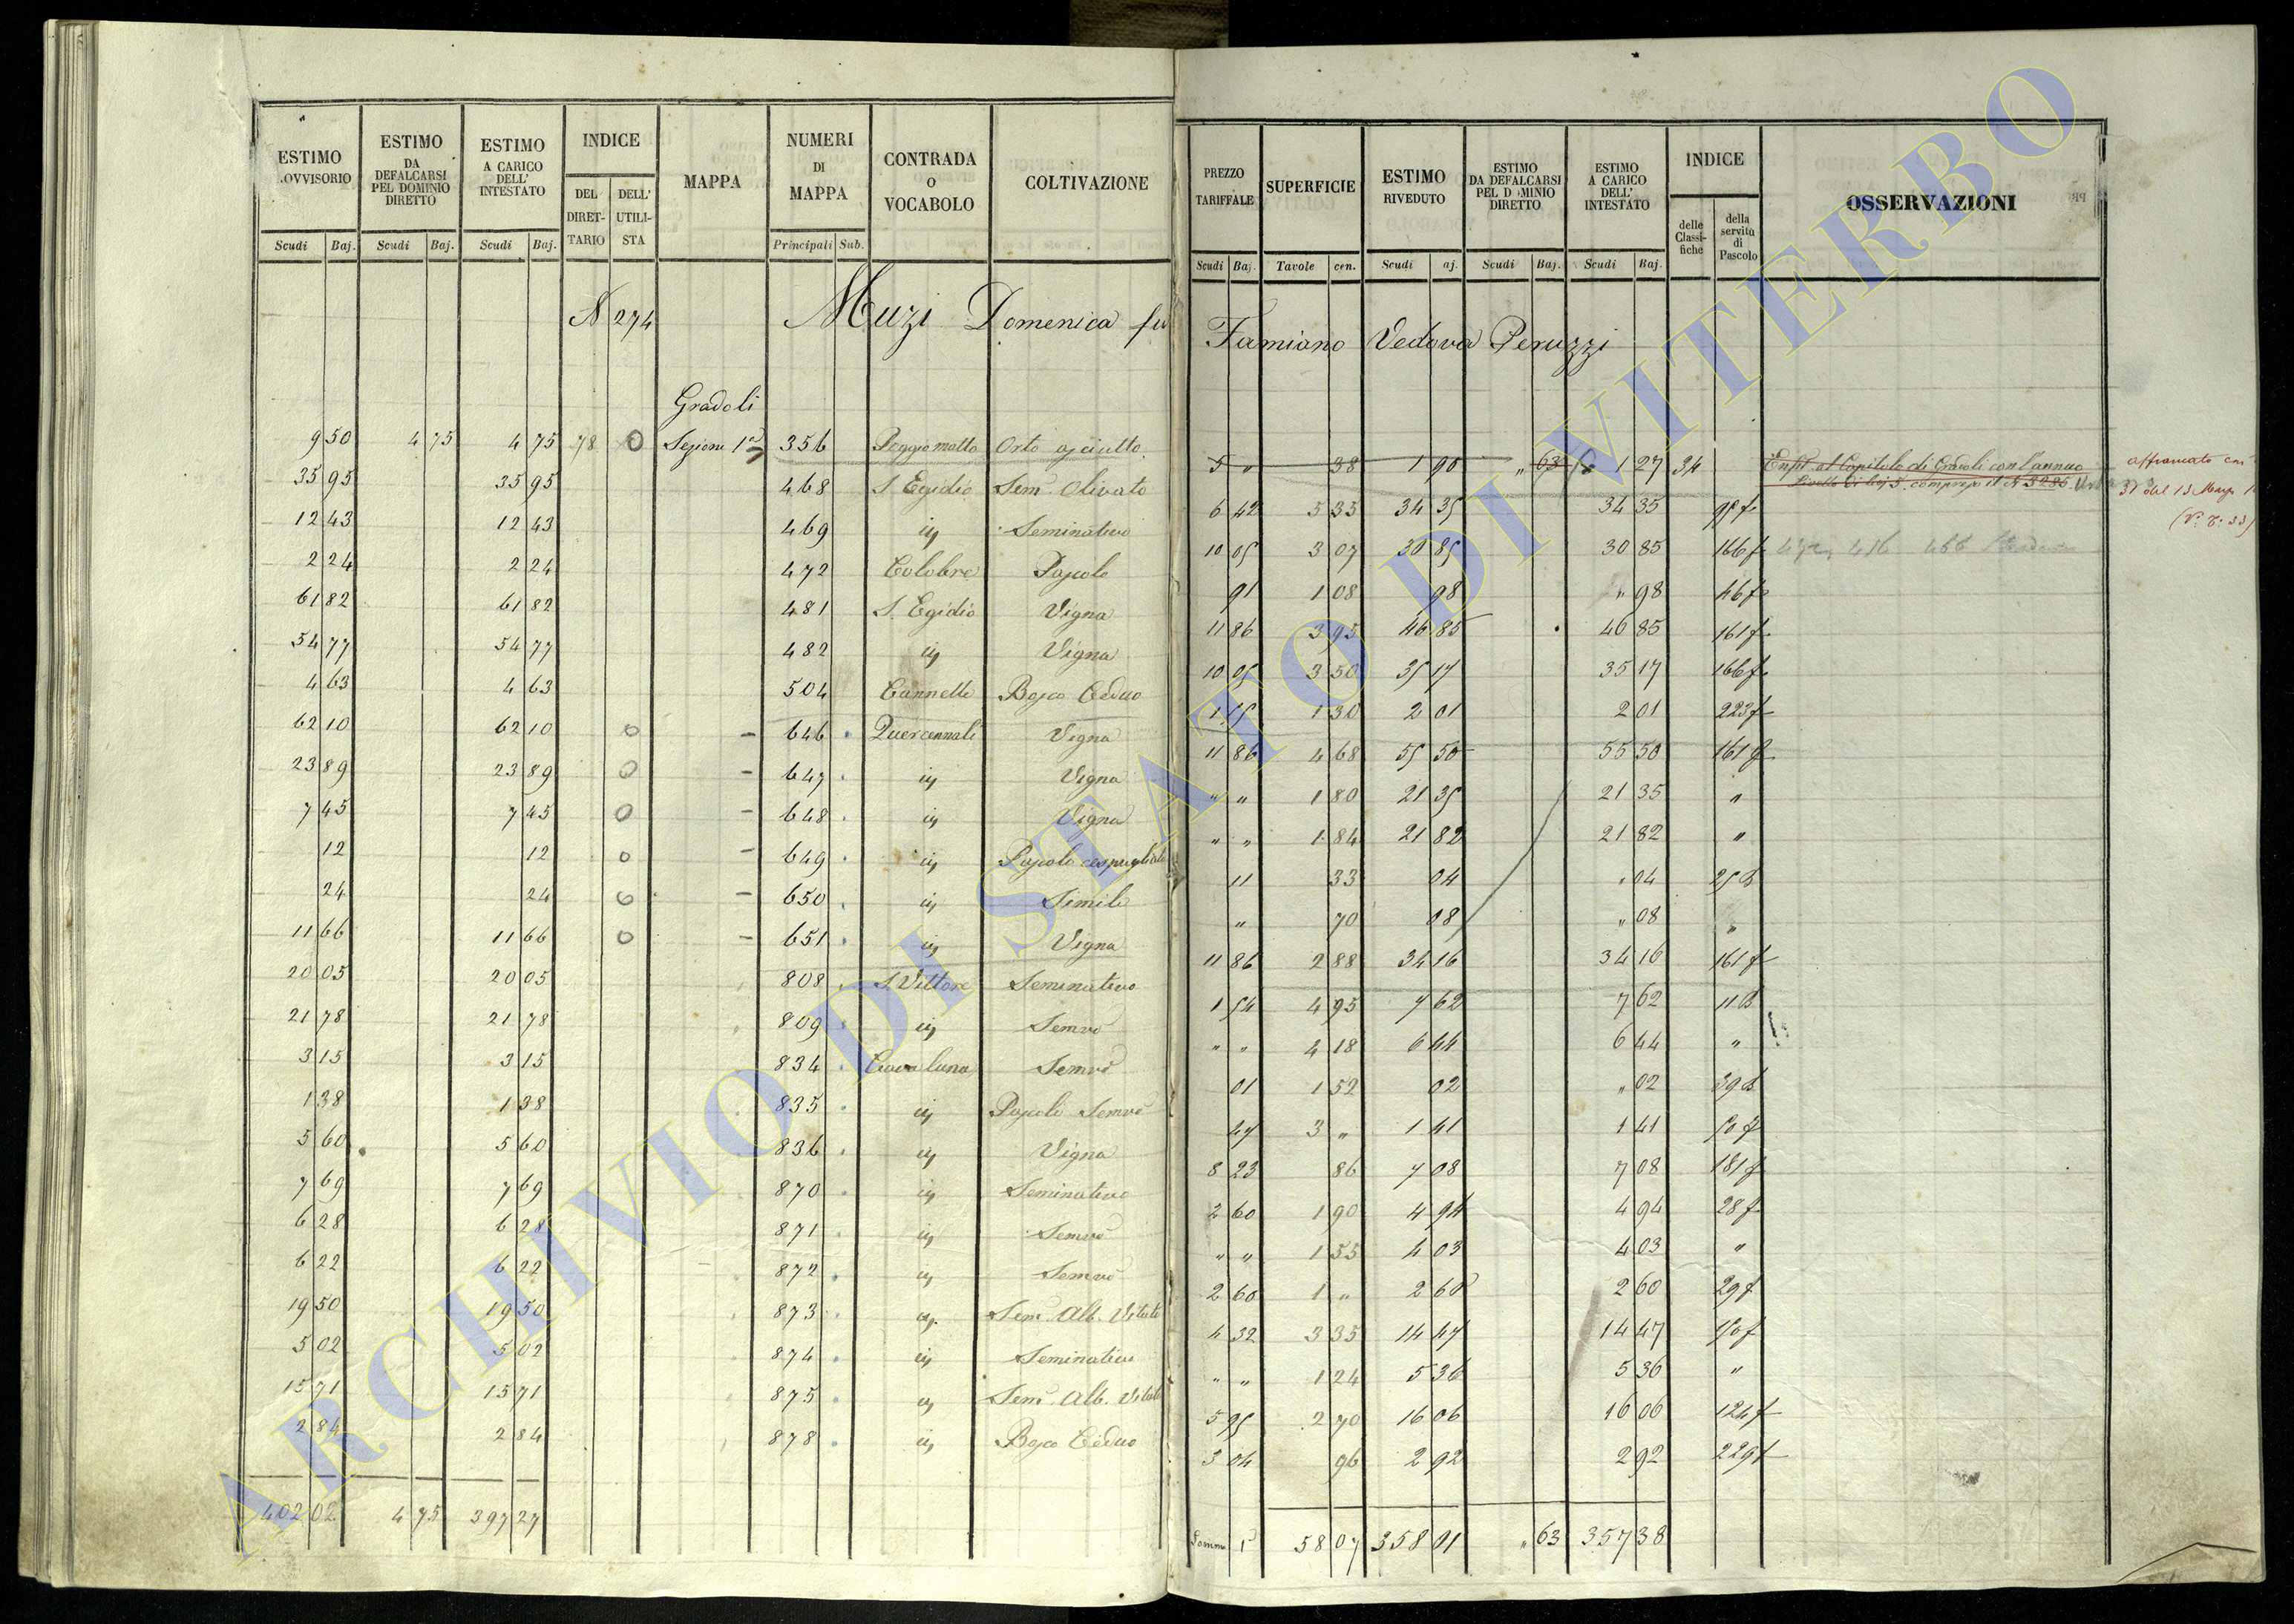 ESTIMO .OVVISORIO | ESTIMO DA DEFALCARSI PEL DOMINIO DIRETTO | ESTIMO A CARICO DELL' INTESTATO | INDICE | MAPPA | NUMERI DI MAPPA | CONTRADA O VOCABOLO | COLTIVAZIONE | PREZZO TARIFFALE | SUPERFICIE | ESTIMO RIVEDUTO | ESTIMO DA DEFALCARSI PEL D MINIO DIRETTO | ESTIMO A CARICO DELL' INTESTATO | INDICE | OSSERVAZIONI
DEL DIRETTARIO | DELL' UTILISTA | delle Classifiche | della servitù di Pascolo
Scudi | Baj. | Scudi | Baj. | Scudi | Baj. | Principali | Sub. | Scudi | Baj. | Tavole | cen. | Scudi | aj. | Scudi | Baj. | Scudi | Baj.
N 274 Muzi Domenica fu Famiano Vedova Peruzzi
Gradoli
9 50 | 4 75 | 4 75 | 78 | O | Sezione 1a | 356 | Poggio matto | Orto asciutto | 5 " | 38 | 1 90 | " 63 | 1 27 | 34 | Enfit. al Capitolo di Gradoli con l'annuo
35 95 | 35 95 | 468 | S. Egidio | Sem. Olivato | 6 42 | 5 35 | 34 35 | 34 35
12 43 | 12 43 | 469 | in | Seminativo | 10 05 | 3 07 | 30 85 | 30 85 | 166 f
2 24 | 2 24 | 472 | Colobre | Pascolo | 91 | 1 08 | 98 | " 98 | 46 f
61 82 | 61 82 | 481 | S. Egidio | Vigna | 11 86 | 3 95 | 46 85 | 46 85 | 161 f
54 77 | 54 77 | 482 | in | Vigna | 10 05 | 3 50 | 35 17 | 35 17 | 166 f
4 63 | 4 63 | 504 | Cannelle | Bosco Ceduo | 1 55 | 1 30 | 2 01 | 2 01 | 223 f
62 10 | 62 10 | O | 646 | Quercennali | Vigna | 11 86 | 4 68 | 55 50 | 55 50 | 161 f
23 89 | 23 89 | O | 647 | in | Vigna | " " | 1 80 | 21 35 | 21 35 | "
7 45 | 7 45 | O | 648 | in | Vigna | " " | 1 84 | 21 82 | 21 82 | "
12 | 12 | O | 649 | in | Pascolo cespugliato | 11 | 33 | 04 | " 04 | 25 B
24 | 24 | O | 650 | in | Simile | " | 70 | 08 | " 08 | "
11 66 | 11 66 | O | 651 | in | Vigna | 11 86 | 2 88 | 34 16 | 34 16 | 161 f
20 05 | 20 05 | 808 | S. Vittore | Seminativo | 1 54 | 4 95 | 7 62 | 7 62 | 11 B
21 78 | 21 78 | 809 | in | Semvo | " " | 4 18 | 6 44 | 6 44 | "
3 15 | 3 15 | 834 | Cava luna | Semvo | 01 | 1 52 | 02 | " 02 | 39 B
1 38 | 1 38 | 835 | in | Pascolo Semvo | 47 | 3 " | 1 41 | 1 41 | 50 f
5 60 | 5 60 | 836 | in | Vigna | 8 23 | 86 | 7 08 | 7 08 | 181 f
7 69 | 7 69 | 870 | in | Seminativo | 2 60 | 1 90 | 4 94 | 4 94 | 28 f
6 28 | 6 28 | 871 | in | Semvo | " " | 1 55 | 4 03 | 4 03 | "
6 22 | 6 22 | 872 | in | Semvo | 2 60 | 1 " | 2 60 | 2 60 | 29 f
19 50 | 19 50 | 873 | in | Sem. Alb. Vitato | 4 32 | 3 35 | 14 47 | 14 47 | 150 f
5 02 | 5 02 | 874 | in | Seminativo | " " | 1 24 | 5 36 | 5 36 | "
15 71 | 15 71 | 875 | in | Sem. Alb. Vitato | 5 95 | 2 70 | 16 06 | 16 06 | 124 f
2 84 | 2 84 | 878 | in | Bosco Ceduo | 3 04 | 96 | 2 92 | 2 92 | 229 f
402 02 | 4 75 | 397 27 | 58 07 | 358 01 | " 63 | 357 38
ARCHIVIO DI STATO DI VITERBO